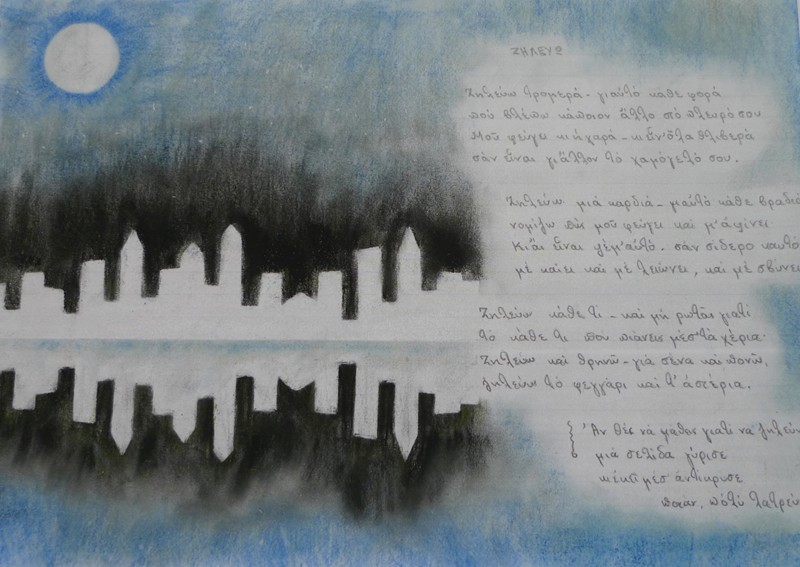 ΖΗΛΕΥΩ
Ζηλεύω τρομερά - γιαὐτό κάθε φορά
πού βλέπω κάποιον ἄλλο στό πλευρό σου
Μοῦ φεύγει κι ἡ χαρά - κι εἶν' ὅλα θλιβερά
σάν εἶναι γι ἄλλον τό χαμόγελό σου.
Ζηλεύω μιά καρδιά - μαὐτό κάθε βραδιά
νομίζω πώς μοῦ φεύγει καί μ' ἀφίνει
κι ἄν εἶναι ψέμ' αὐτό. σάν σίδερο καυτό
μέ καίει καί μέ λειώνει, καί μέ σβύνει
Ζηλεύω κάθε τι - καί μή ρωτᾶς γιατί
τό κάθε τι πού πιάνεις μές τά χέρια.
Ζηλεύω καί θρηνῶ - γιά σένα καί πονῶ,
ζηλεύω τό φεγγάρι καί τ' ἀστέρια.
Ἄν θές νά μάθης γιατί νά ζηλεύω
μιά σελίδα γύρισε
κι ἐκεῖ μέσ' ἀντίκρυσε
ποιαν, πολύ λατρεύ